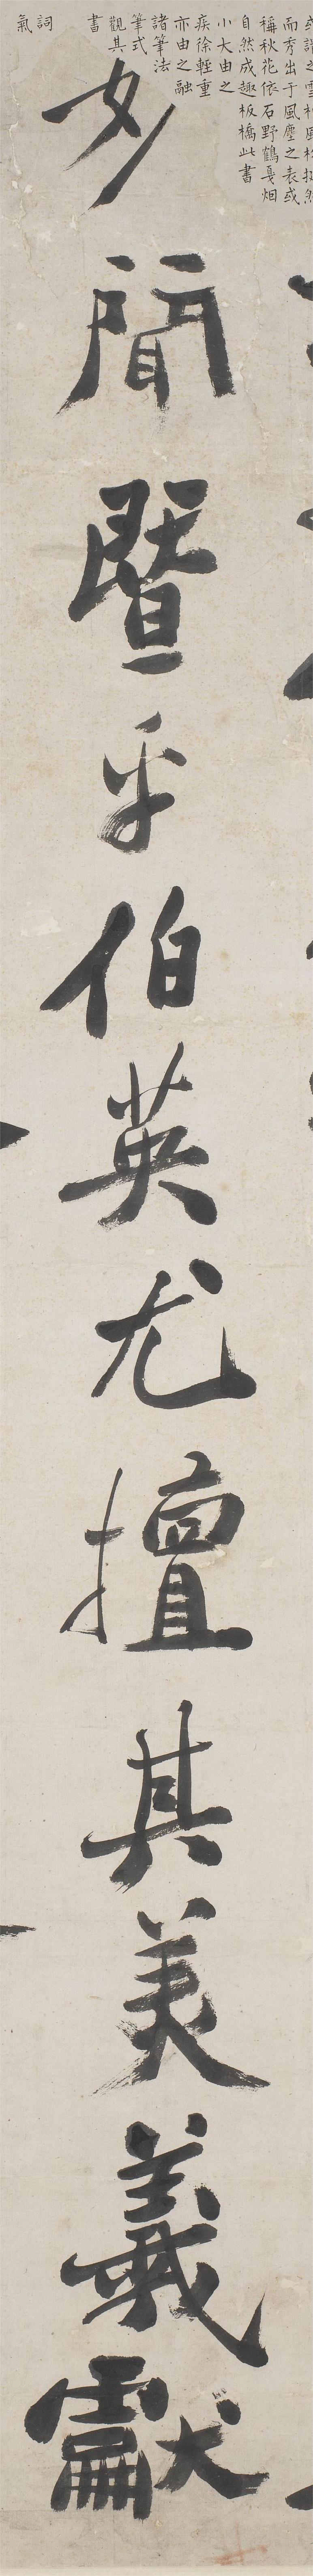 或謂之雪柏風松挺然
而秀出于風塵之表或
稱秋花依石野鶴戛烟
自然成趣板橋此書
小大由之
疾徐輕重
亦由之融
諸筆法
筆式
觀其
書
詞
氣
妙聞暨乎伯英尤擅其美羲獻